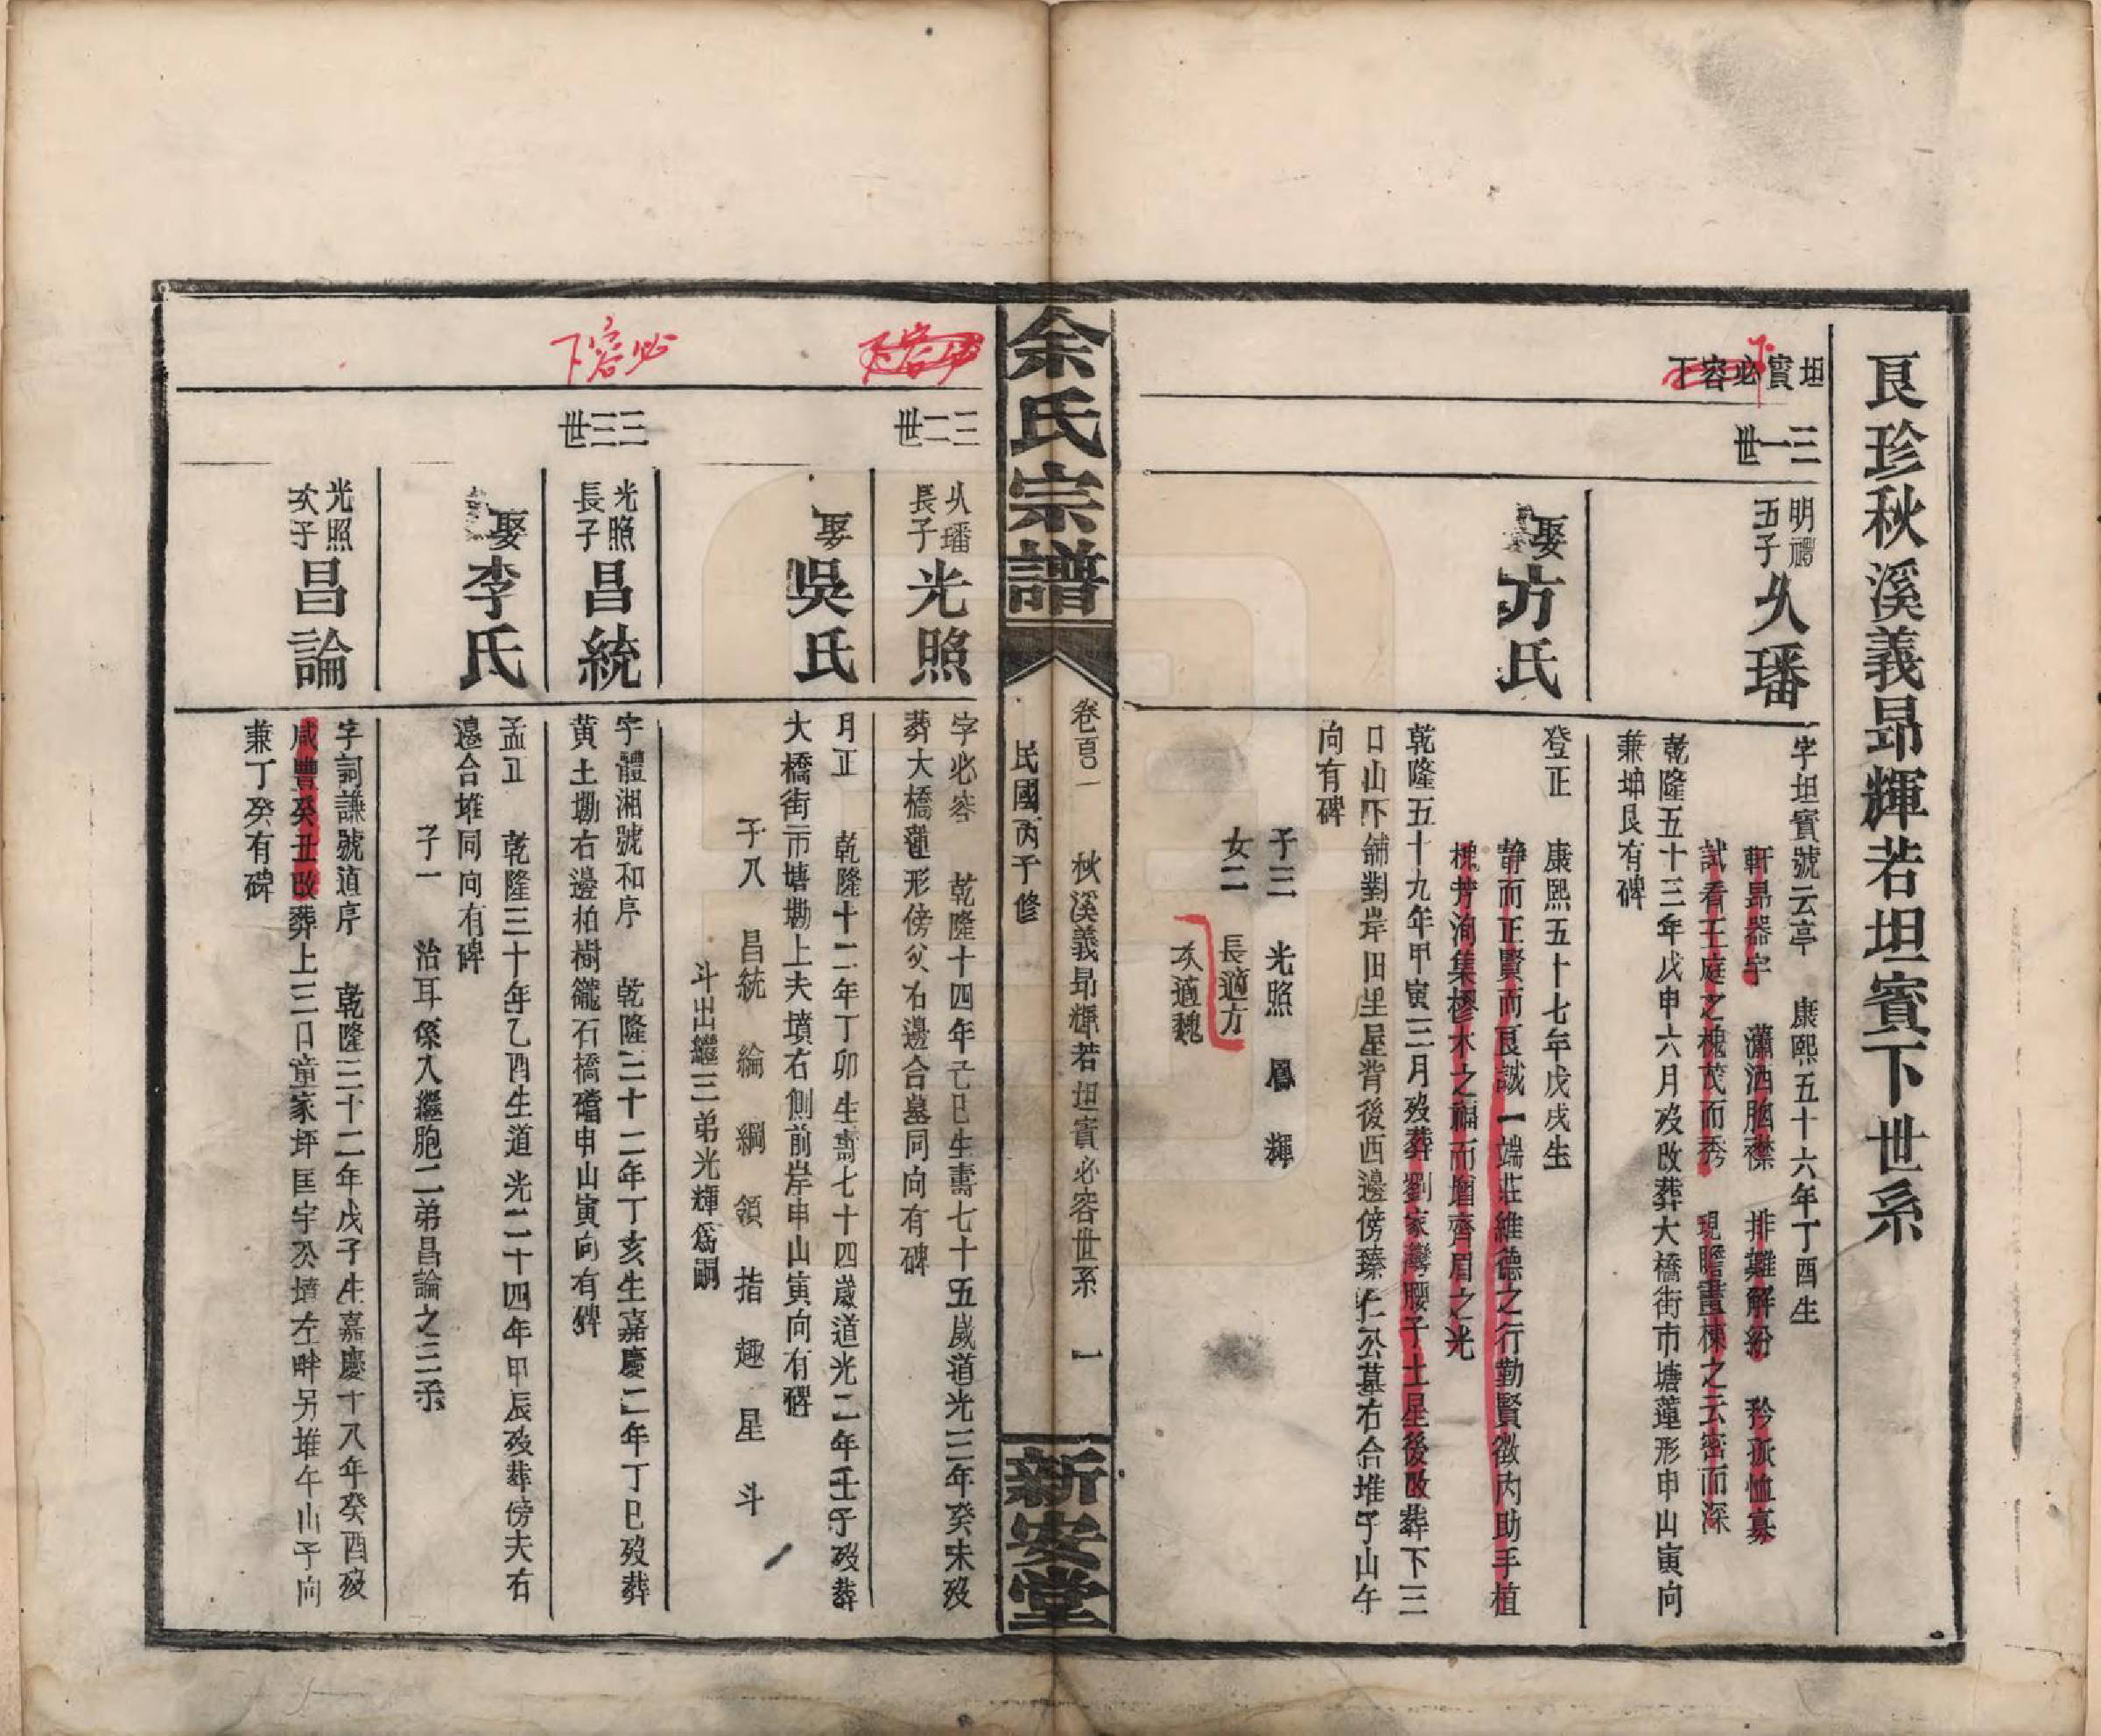 良珍秋溪義昻輝若坦賓下世系
坦賓必容下
三一世
明禮
五子
久璠
字坦賓號云亭　康熙五十六年丁酉生
軒昻器宇　瀟洒胸襟　排難解紛　矜孤恤寡
試看王庭之槐茂而秀　現瞻畫棟之云密而深
乾隆五十三年戊申六月歿改葬大橋街市塘蓮形申山寅向
兼坤艮有碑
娶方氏
登正　康熙五十七年戊戌生
静而正賢而良誠一端莊維德之行勤賢徵內助手植
槐芳洵集樛木之福而增齊眉之光
乾隆五十九年甲寅三月歿葬劉家灣腰子土星後改葬下三
口山下舖對岸田里屋背後西邊傍臻仁公墓右合堆子山午
向有碑
子三　光照　鳳　輝
女二　長適方
次適魏
余氏宗譜
卷百一　秋溪義昻輝若坦賓必容世系　一
民國丙子修
新安堂
三二世
久璠
長子
光照
字必容　乾隆十四年己巳生壽七十五歲道光三年癸未歿
葬大橋蓮形傍父右邊合墓同向有碑
娶吳氏
月正　乾隆十二年丁卯生壽七十四歲道光二年壬子歿葬
大橋街市塘塝上夫墳右側前岸申山寅向有碑
子八　昌統　綸　綱　領　指　趣　星　斗
斗出繼三弟光輝爲嗣
必容下
三三世
光照
長子
昌統
字體湘號和序　乾隆三十二年丁亥生嘉慶二年丁巳歿葬
黃土塝右邊柏樹巃石橋礑申山寅向有碑
娶李氏
孟正　乾隆三十年乙酉生道光二十四年甲辰歿葬傍夫右
邊合堆同向有碑
子一　治耳係入繼胞二弟昌論之三子
光照
次子
昌論
字詞謙號道序　乾隆三十二年戊子生嘉慶十八年癸酉歿
咸豐癸丑改葬上三口童家坪匡宇公墳左畔另堆午山子向
兼丁癸有碑